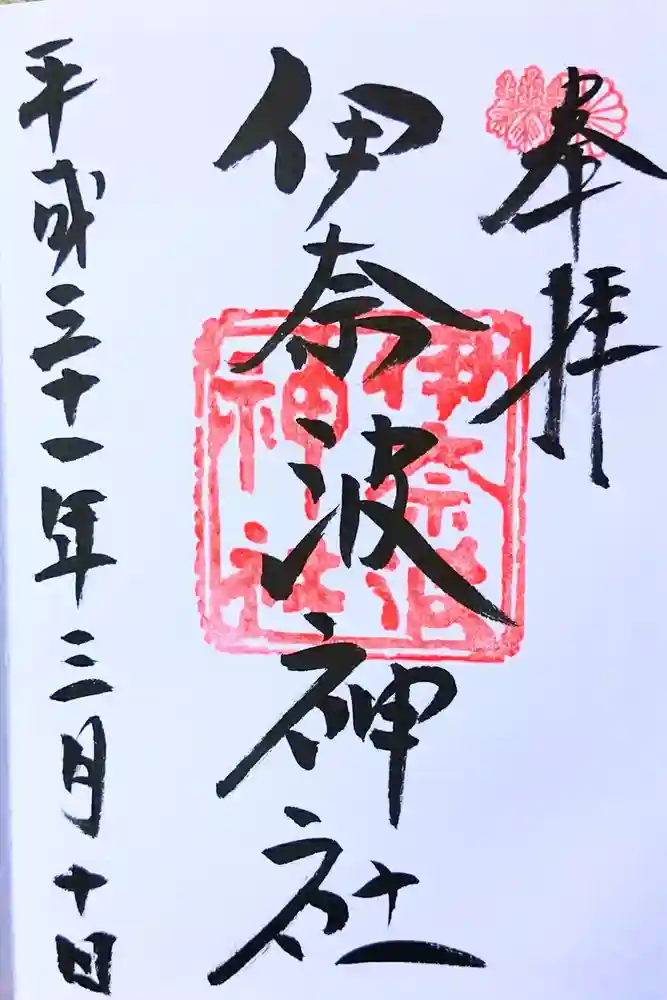 奉拝
伊奈波神社
伊奈波神社
平成三十一年三月十日